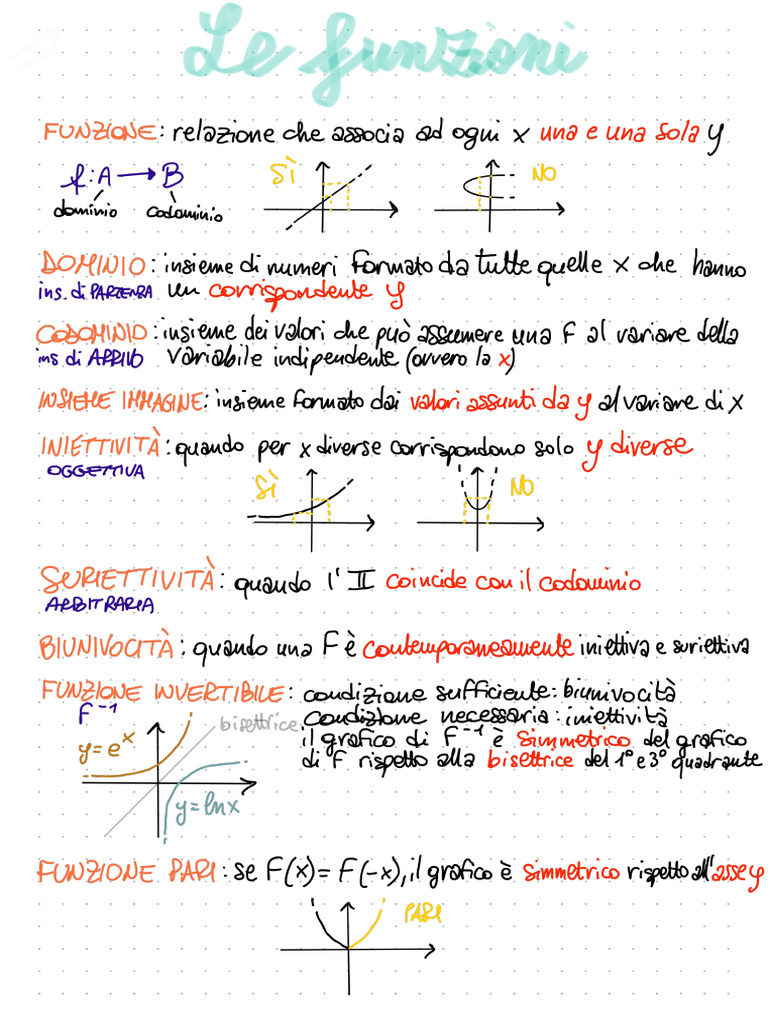 Le funzioni
FUNZIONE: relazione che associa ad ogni x una e una sola y
f: A → B
dominio codominio
SÌ
NO
DOMINIO: insieme di numeri formato da tutte quelle x che hanno
ins. di PARTENZA un corrispondente y
CODOMINIO: insieme dei valori che può assumere una F al variare della
ins di ARRIVO variabile indipendente (ovvero la x)
INSIEME IMMAGINE: insieme formato dai valori assunti da y al variare di x
INIETTIVITÀ: quando per x diverse corrispondono solo y diverse
OGGETTIVA
SÌ
NO
SURIETTIVITÀ: quando l'II coincide con il codominio
ARBITRARIA
BIUNIVOCITÀ: quando una F è contemporaneamente iniettiva e suriettiva
FUNZIONE INVERTIBILE: condizione sufficiente: biunivocità
F⁻¹
bisettrice
condizione necessaria: iniettività
y=eˣ
il grafico di F⁻¹ è simmetrico del grafico
di F rispetto alla bisettrice del 1° e 3° quadrante
y=lnx
FUNZIONE PARI: se F(x)=F(-x), il grafico è simmetrico rispetto all'asse y
PARI